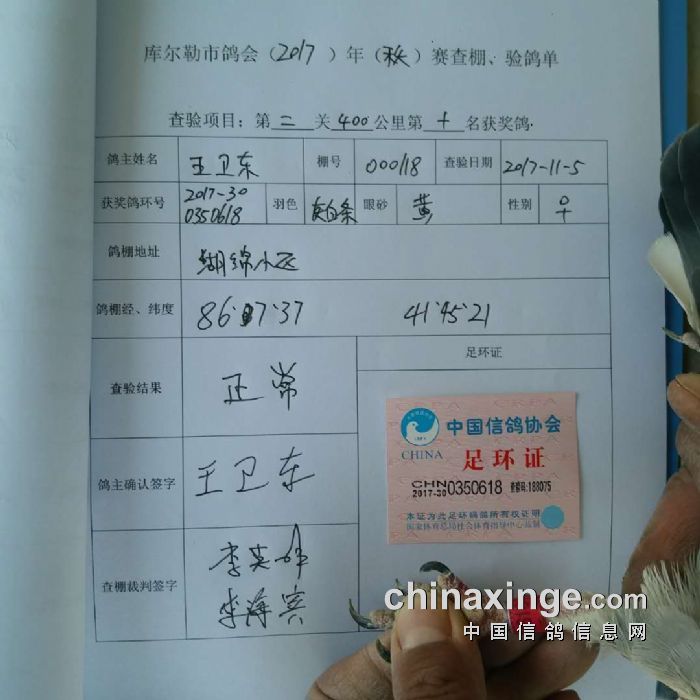 库尔勒市鸽会（2017）年（秋）赛查棚、验鸽单
查验项目：第二关400公里第十名获奖鸽.
鸽主姓名 王卫东 棚号 000118 查验日期 2017-11-5
获奖鸽环号 2017-30 0350618 羽色 灰白条 眼砂 黄 性别 ♀
鸽棚地址 湖绵小区
鸽棚经、纬度 86·07·37 41·45·21
查验结果 正常
足环证
鸽主确认签字 王卫东
查棚裁判签字 李英 李海宾
中国信鸽协会
CHINA 足环证
CHN 2017-30 0350618 查验码:188075
本证为此足环鸽所有权证明
国家体育总局社会体育指导中心监制
chinaxinge.com
中国信鸽信息网